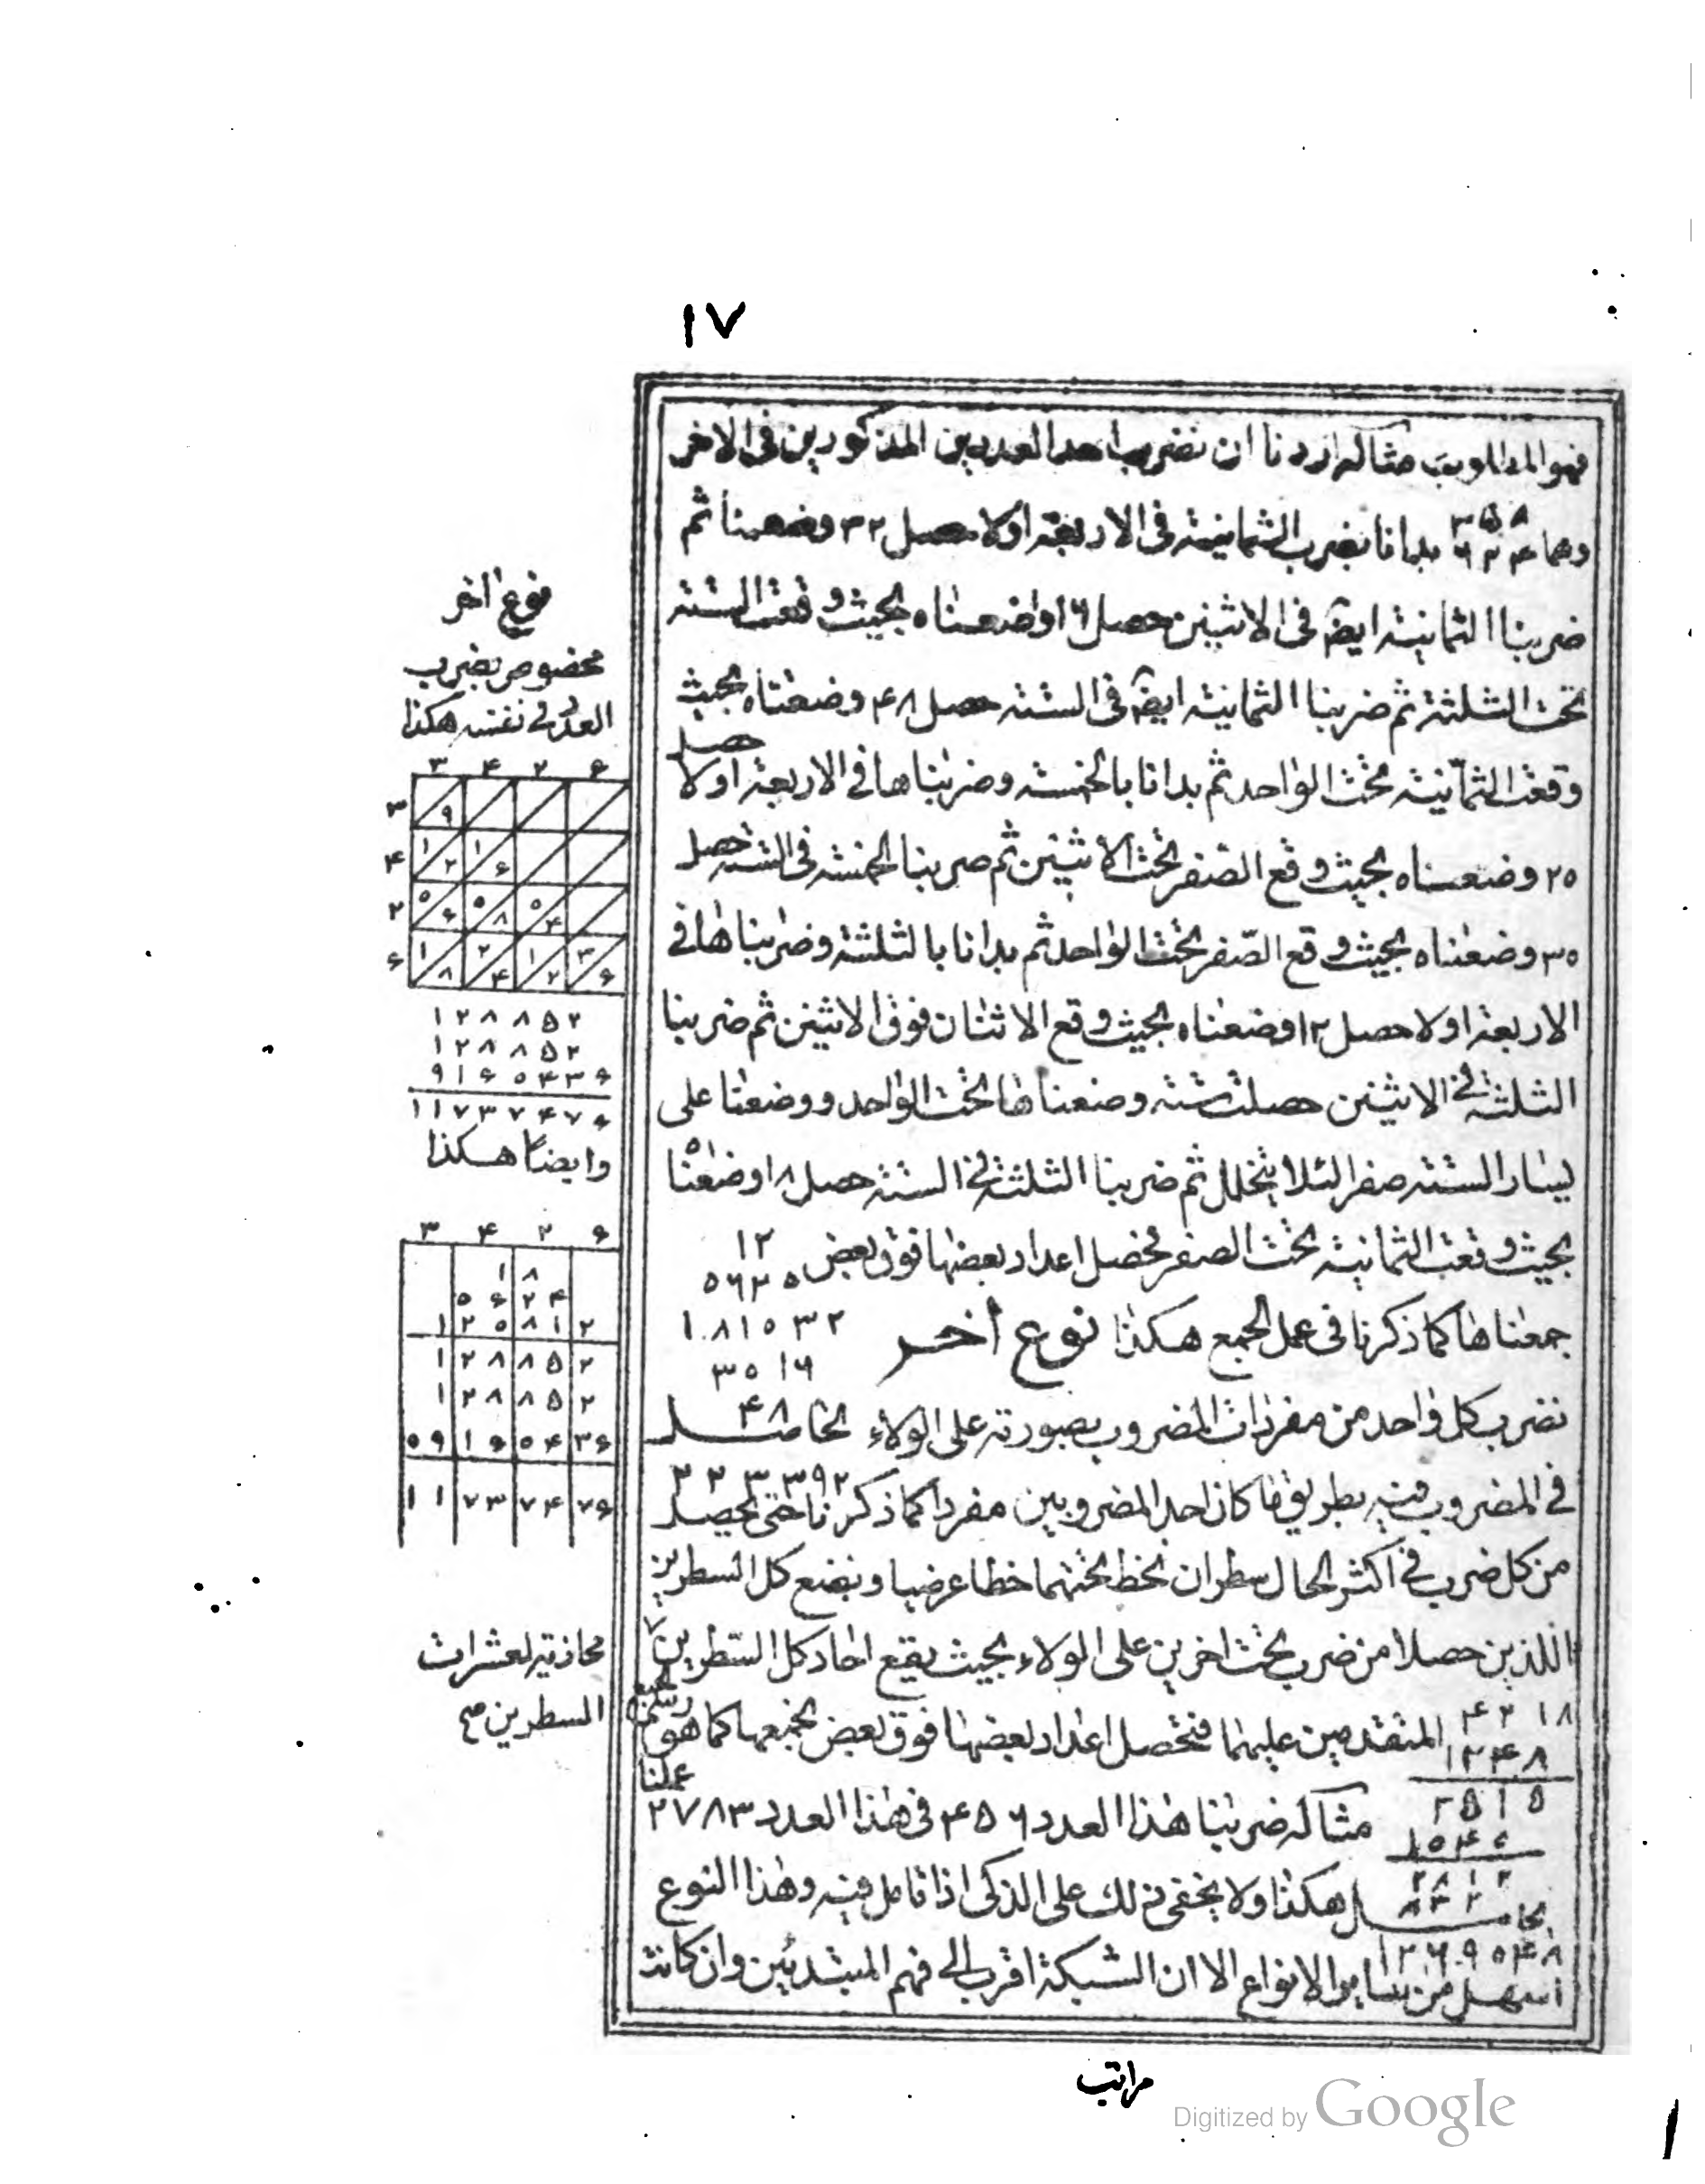 ١٧
فهو المطلوب مثاله اردنا ان نضرب احد العددين المذكورين فى الاخر
وهما ٣٥٨ ٦٢۴ بدانا بضرب الثمانية فى الاربعة اولا حصل ٣٢ وضعنا ثم
ضربنا الثمانية ايضا فى الاثنين حصل ١٦ وضعناه بحيث وقعت الستة
تحت الثلثة ثم ضربنا الثمانية ايضا فى الستة حصل ۴٨ وضعناه بحيث
وقعت الثمانية تحت الواحد ثم بدانا بالخمسة وضربناها فى الاربعة اولا حصل
٢٥ وضعناه بحيث وقع الصفر تحت الاثنين ثم ضربنا الخمسة فى الستة حصل
٣٥ وضعناه بحيث وقع الصفر تحت الواحد ثم بدانا بالثلثة وضربناها فى
الاربعة اولا حصل ١٢ وضعناه بحيث وقع الاثنان فوق الاثنين ثم ضربنا
الثلثة فى الاثنين حصلت ستة وضعناها تحت الواحد ووضعنا على
يسار الستة صفرا لئلا يتخلل ثم ضربنا الثلثة فى الستة حصل ١٨ وضعناه
بحيث وقعت الثمانية تحت الصفر فحصل اعداد بعضها فوق بعض
جمعناها كما ذكرنا فى عمل الجمع هكذا نوع اخر
١٢
٥٦٢٥
١٠٨١٥٣٢
٣٥١٦
۴٨
٢٢٣٣٩٢
نضرب كل واحد من مفردات المضروب بصورته على الولاء الحاصل
فى المضروب فيه بطريق ما كان احد المضروبين مفردا كما ذكرنا حتى يحصل
من كل ضرب فى اكثر الحال سطران نخط تحتهما خطا عرضيا ونضع كل السطرين
اللذين حصلا من ضرب تحت اخرين على الولاء بحيث يقع احاد كل السطرين
المتقدمين عليهما فتحصل اعداد بعضها فوق بعض نجمعها كما هو رسم الجمع
مثاله ضربنا هذا العدد ۴٥٦ فى هذا العدد ٢٧٨٣ عملنا
هكذا ولا يخفى ذلك على الذكى اذا تامل فيه وهذا النوع
اسهل من سائر الانواع الا ان الشبكة اقرب الى فهم المبتدئين وان كانت
۴٢١٨
١٢۴٨
٢٥١٥
١٥۴٤
٢٨١٢
٨۴٢
الحاصل
١٢٦٩٥۴٨
مراتب
نوع اخر
مخصوص بضرب
العدد فى نفسه هكذا
٣ ۴ ٢ ۶
٣ ٩
۴ ١ ٢ ١ ۶
٢ ٥ ۶ ٥ ٨ ٥ ۴
۶ ١ ٨ ٢ ۴ ١ ٢ ٣ ۶
١٢٨٨٥٢
١٢٨٨٥٢
٩١۶٥۴٣۶
١١٧٣٧۴٧۶
وايضا هكذا
٣ ۴ ٢ ۶
١ ٨
٥ ۶ ٢ ۴
١ ٢ ٥ ٨ ١ ٢
١ ٢ ٨ ٨ ٥ ٢
١ ٢ ٨ ٨ ٥ ٢
٥٩ ١ ۶ ٥ ۴ ٣۶
١١ ٧٣ ٧۴ ٧۶
محاذية لعشرات
السطرين صح
Digitized by Google